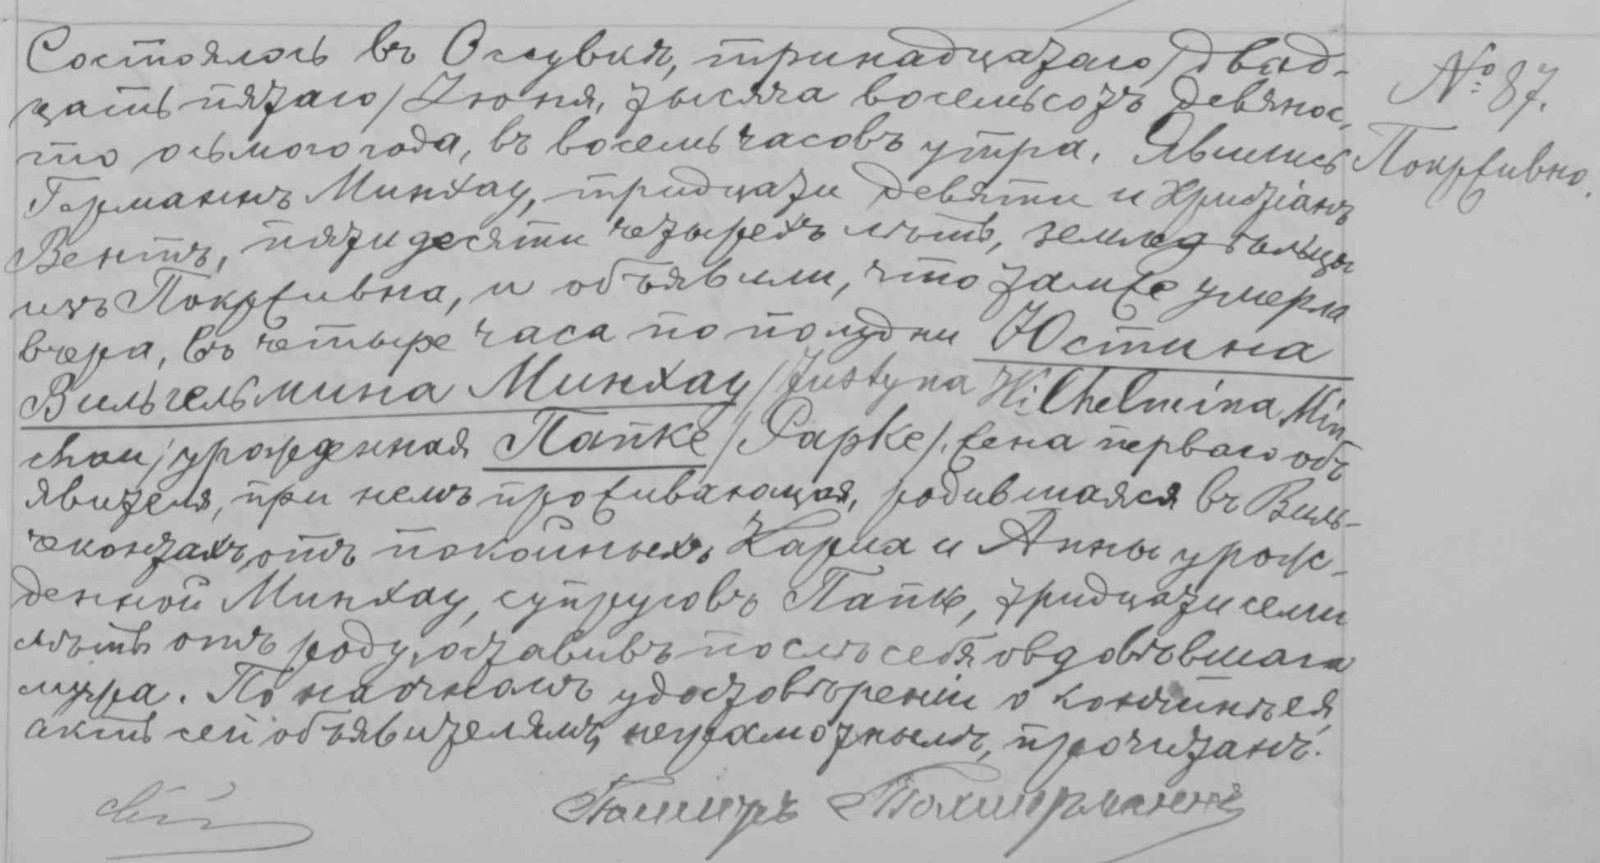 Состоялось въ Осувкѣ, тринадцатаго/двад-
цать пятаго/Іюня, тысяча восемьсотъ девянос-
то осьмого года, въ восемь часовъ утра. Явились
Германнъ Минхау, тридцати девяти и Христіанъ
Вентъ, пятидесяти четырехъ лѣтъ, земледѣльцы
изъ Покрживна, и объявили, что тамже умерла
вчера, въ четыре часа по полудни Юстина
Вильгельмина Минхау/Justyna Wilhelmina Min-
chau/урожденная Папке/Papke/, жена перваго объ-
явителя, при немъ проживающая, родившаяся въ Виль-
чеконтахъ, отъ покойныхъ Карла и Анны урож-
денной Минхау, супруговъ Папке, тридцати семи
лѣтъ отъ роду, оставивъ послѣ себя овдовѣвшаго
мужа. По наочномъ удостовѣреніи о кончинѣ ея,
актъ сей объявителямъ, неграмотнымъ, прочитанъ.
№ 87.
Покрживно.